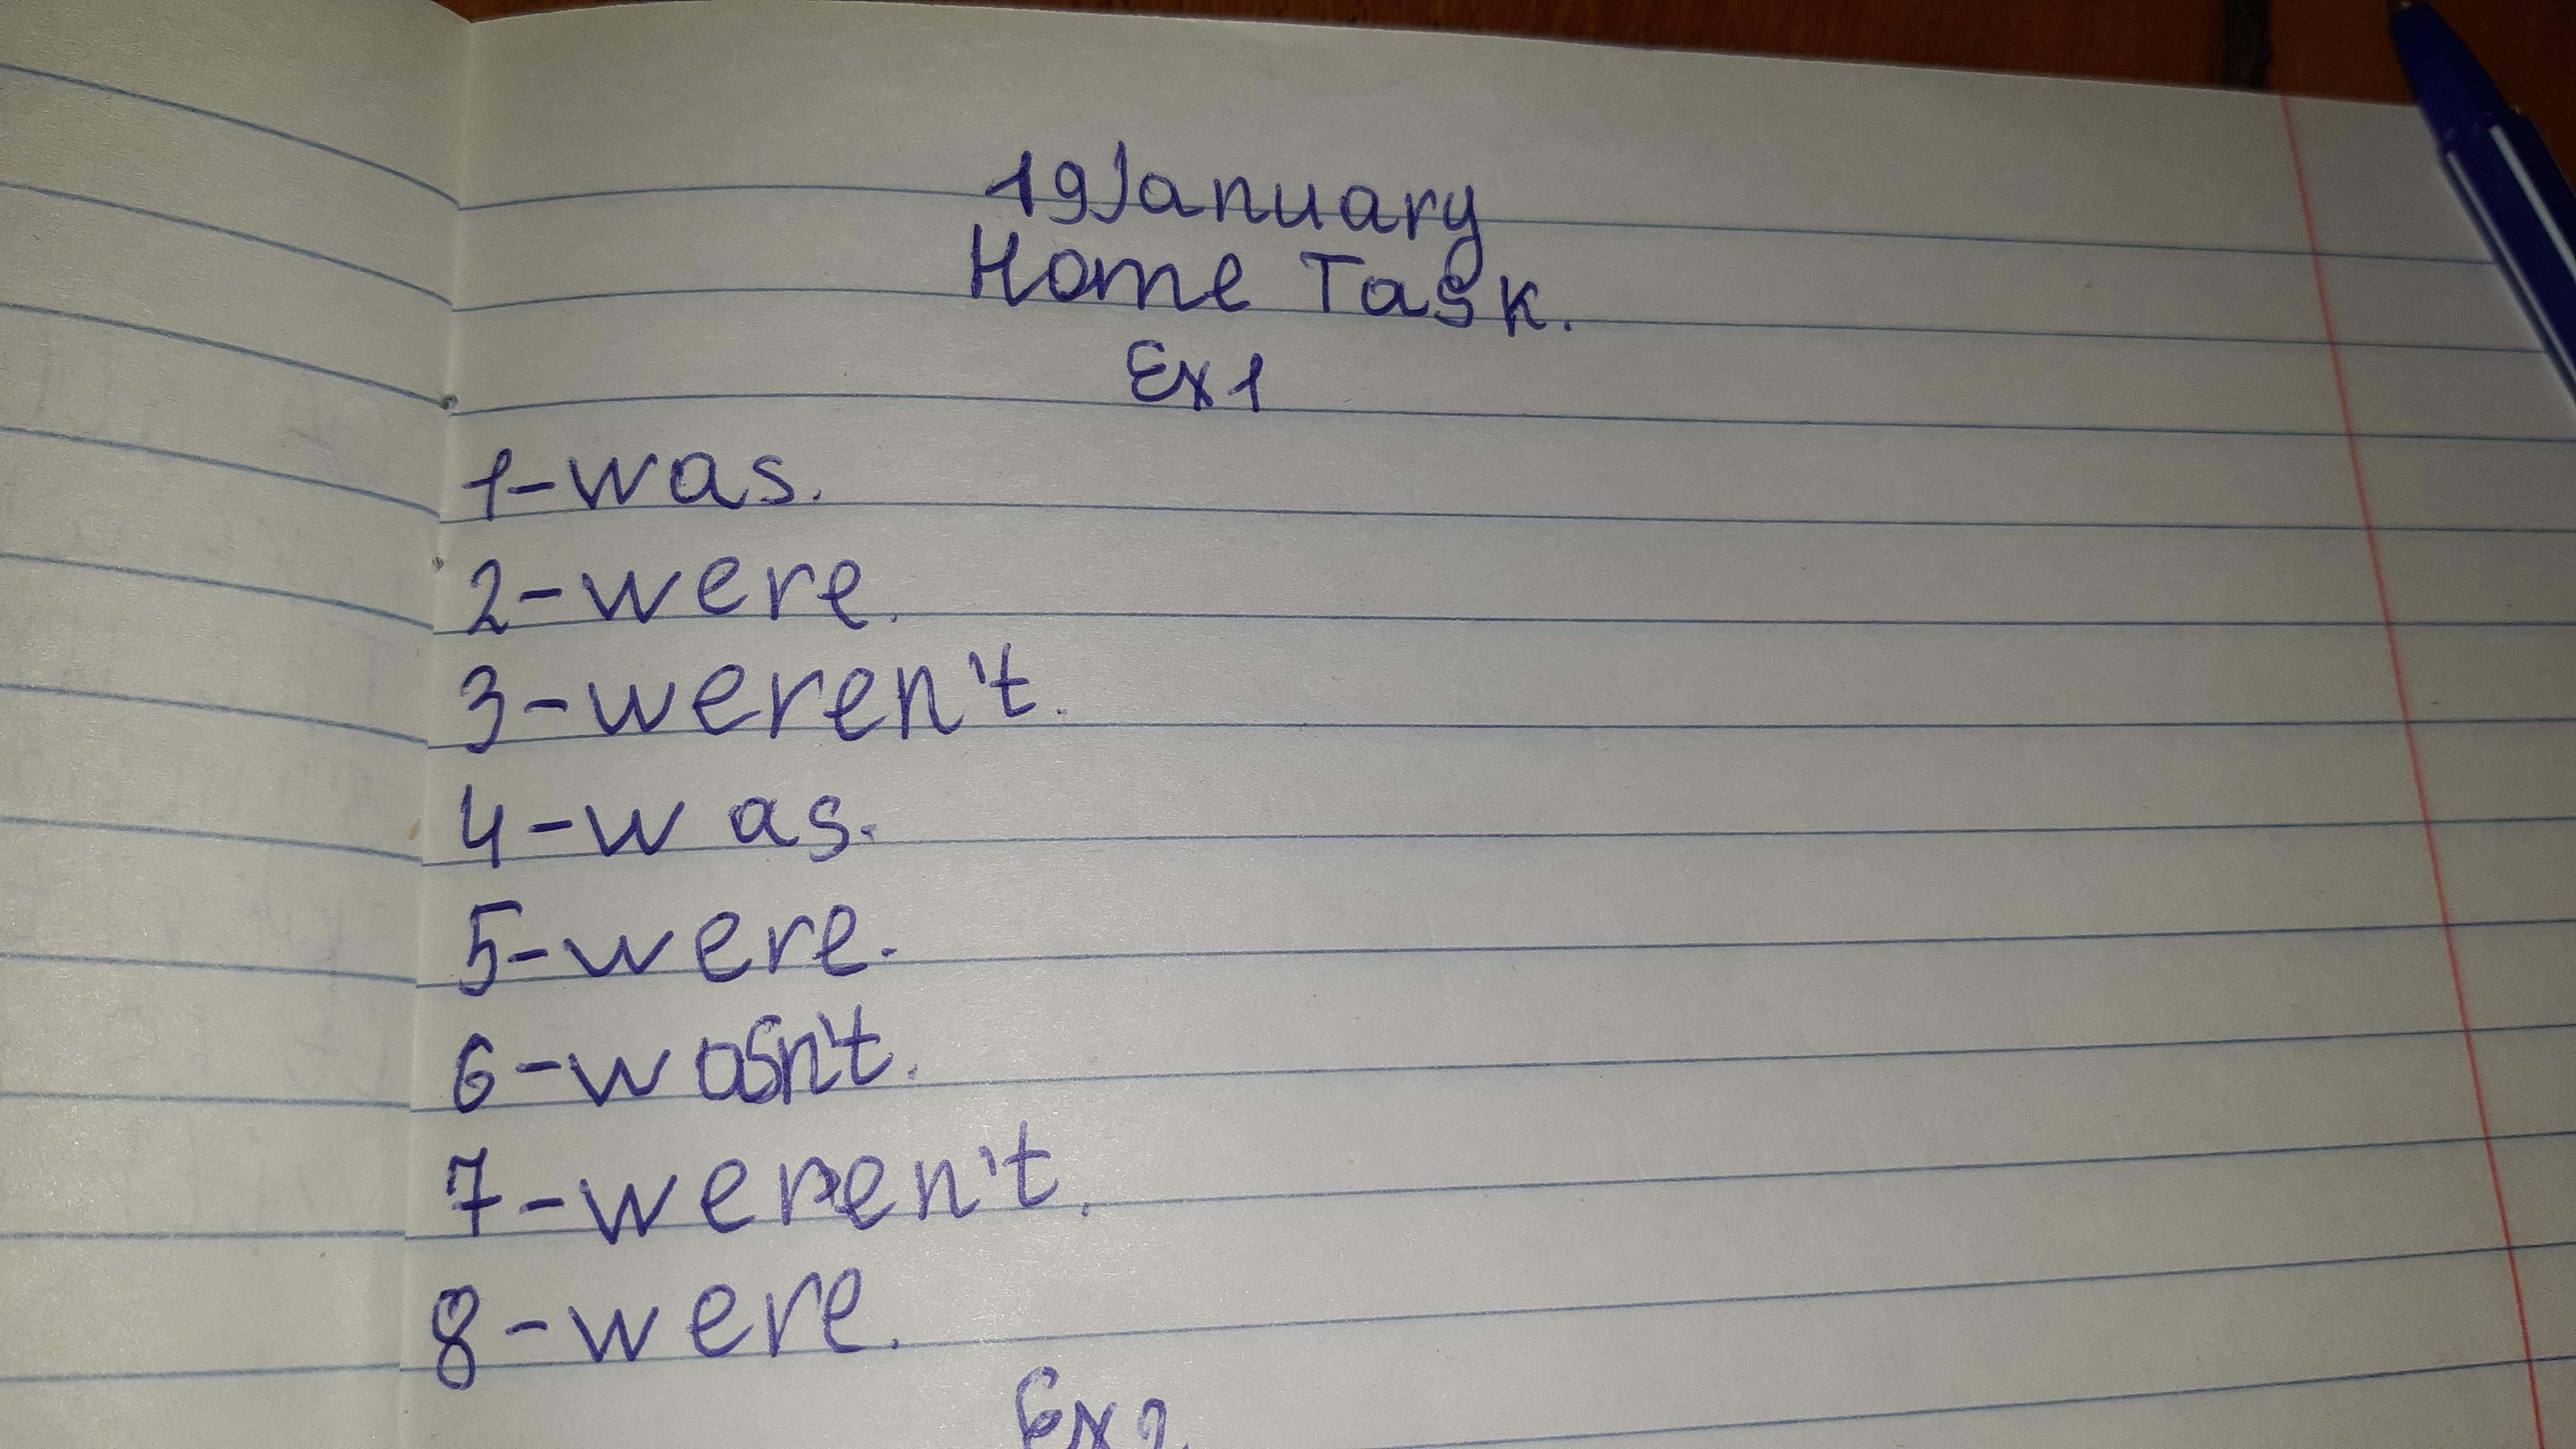 19 January
Home Task.
Ex 1
1-was.
2-were.
3-weren't.
4-was.
5-were.
6-wasn't.
7-weren't.
8-were.
Ex 2